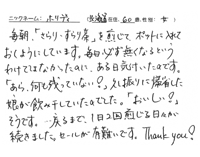 ニックネーム：ホリデイ（北海道在住、60歳、性別：女）
毎朝、「さらり・すらり茶」を煎じて、ポットに入れて
おくようにしています。毎日必ず無くなるという
わけではなかったのに、ある日気付いたのです。
「あら、何も残っていない？」久し振りに帰省した
娘が飲み干していたのでした。「おいしい？」
そうです。一度みるまで、1日2回煎じる日々が
続きました。セールが有難いです。Thank you!